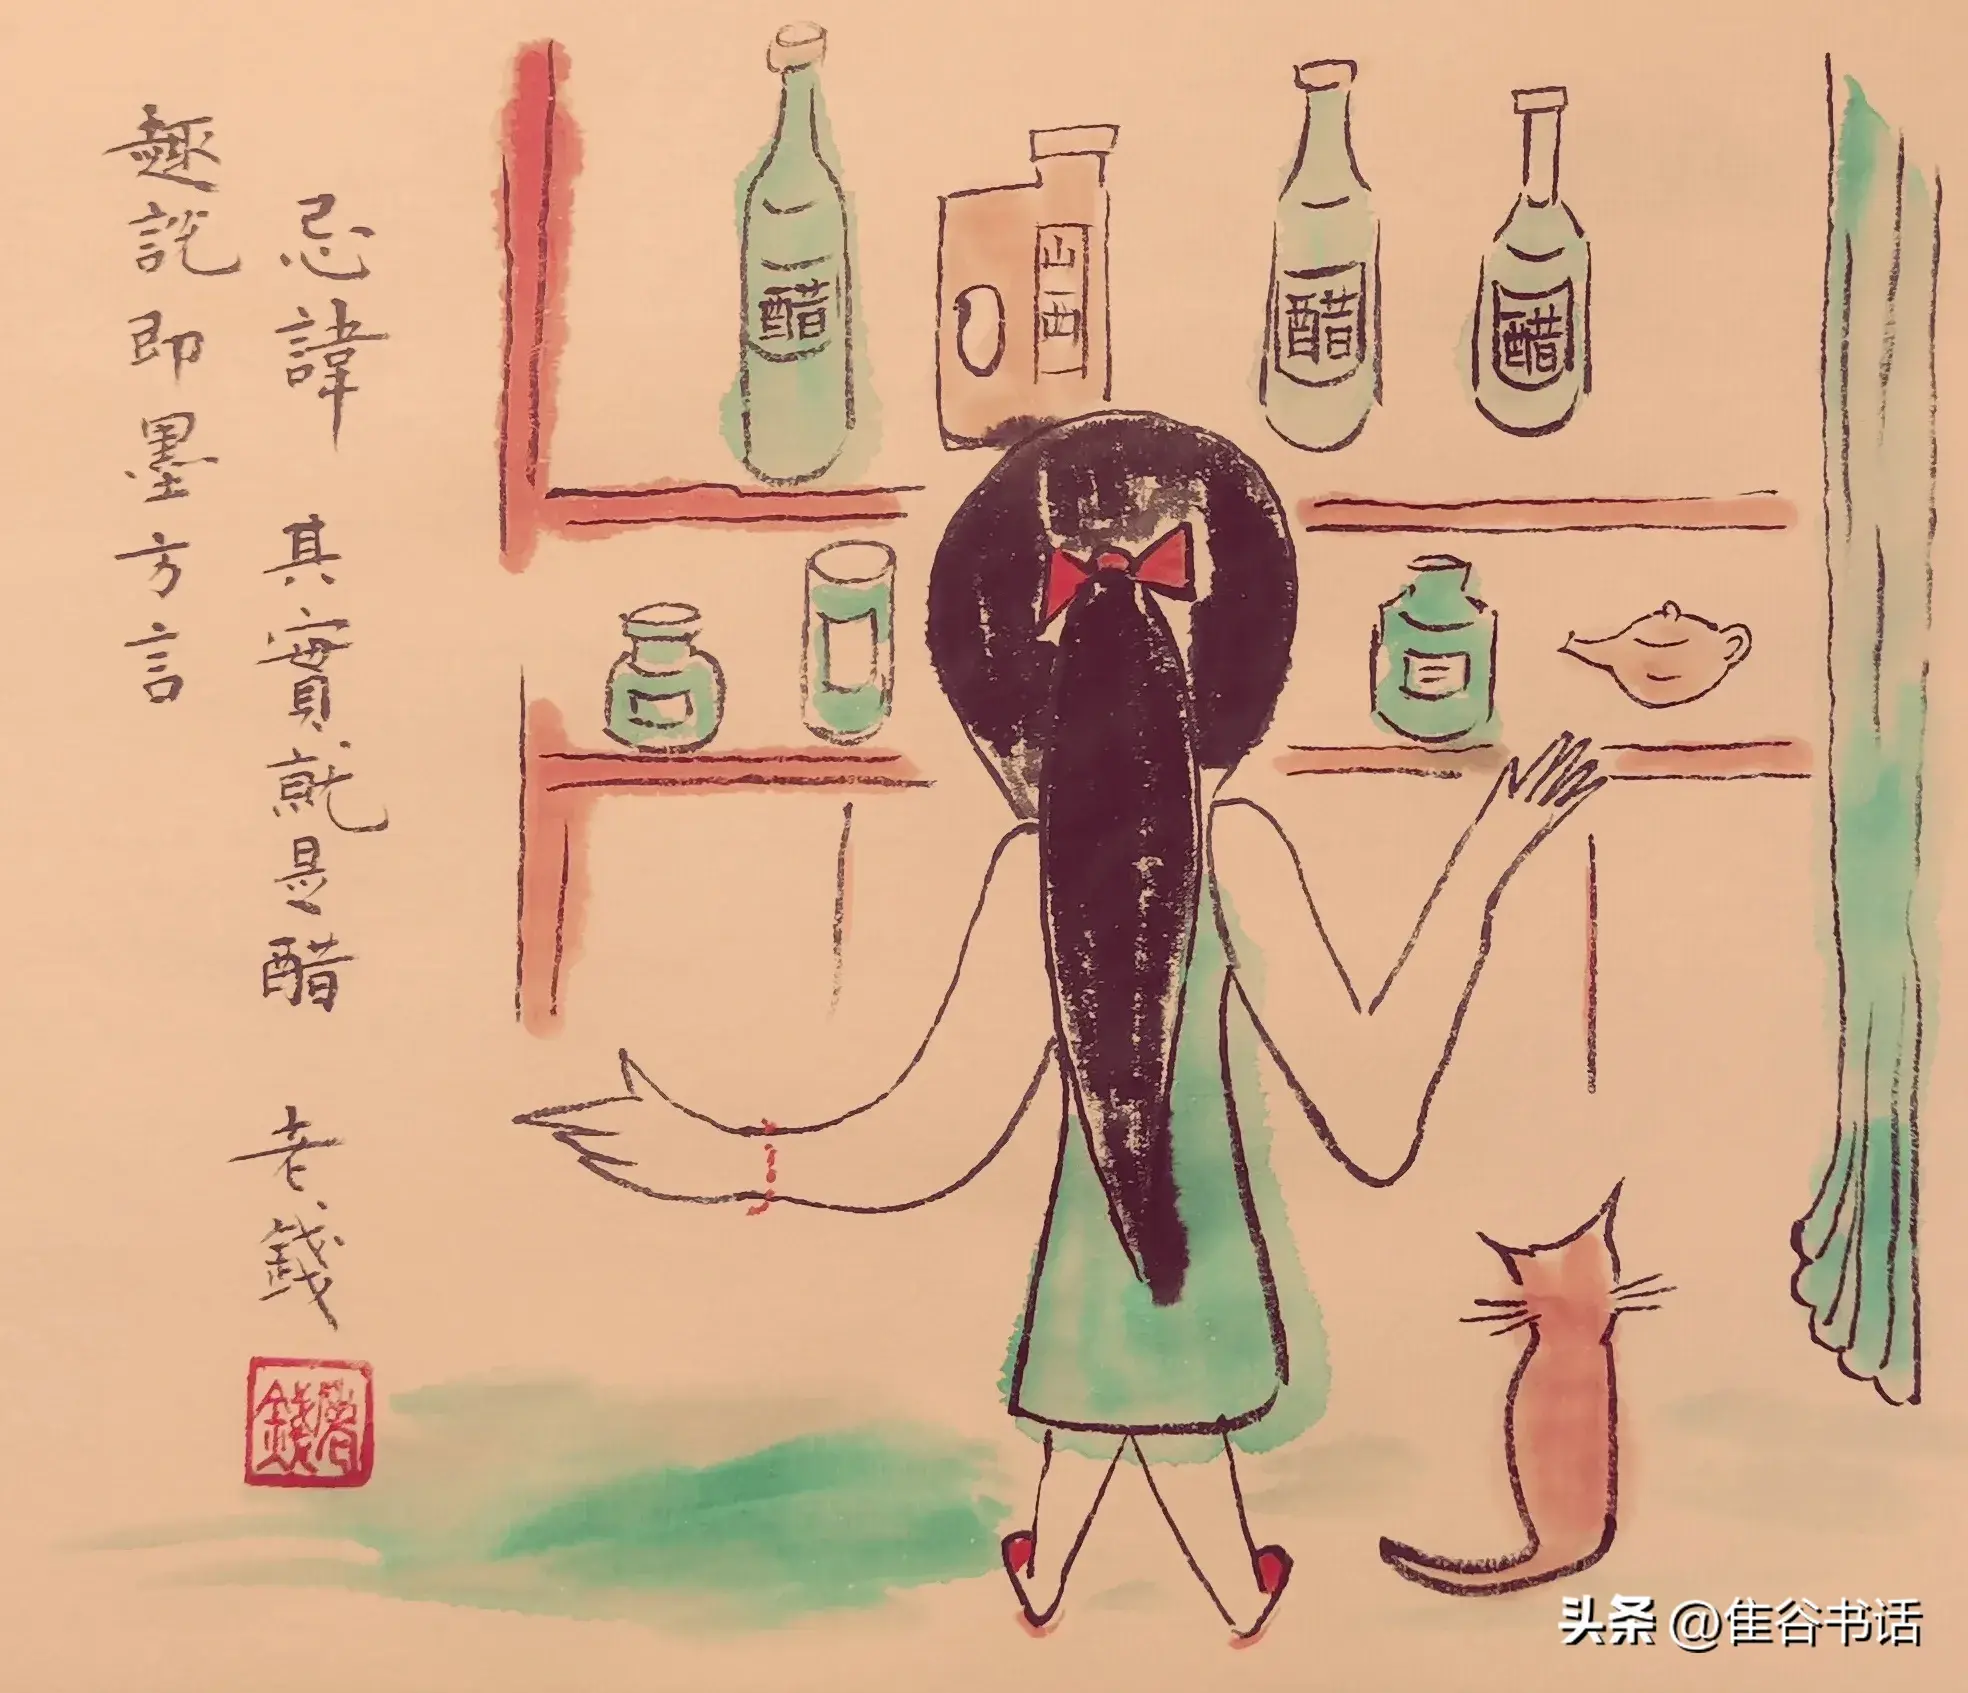 趣說即墨方言
忌諱 其實就是醋 老錢
醋
山西
醋
醋
头条 @隹谷书话